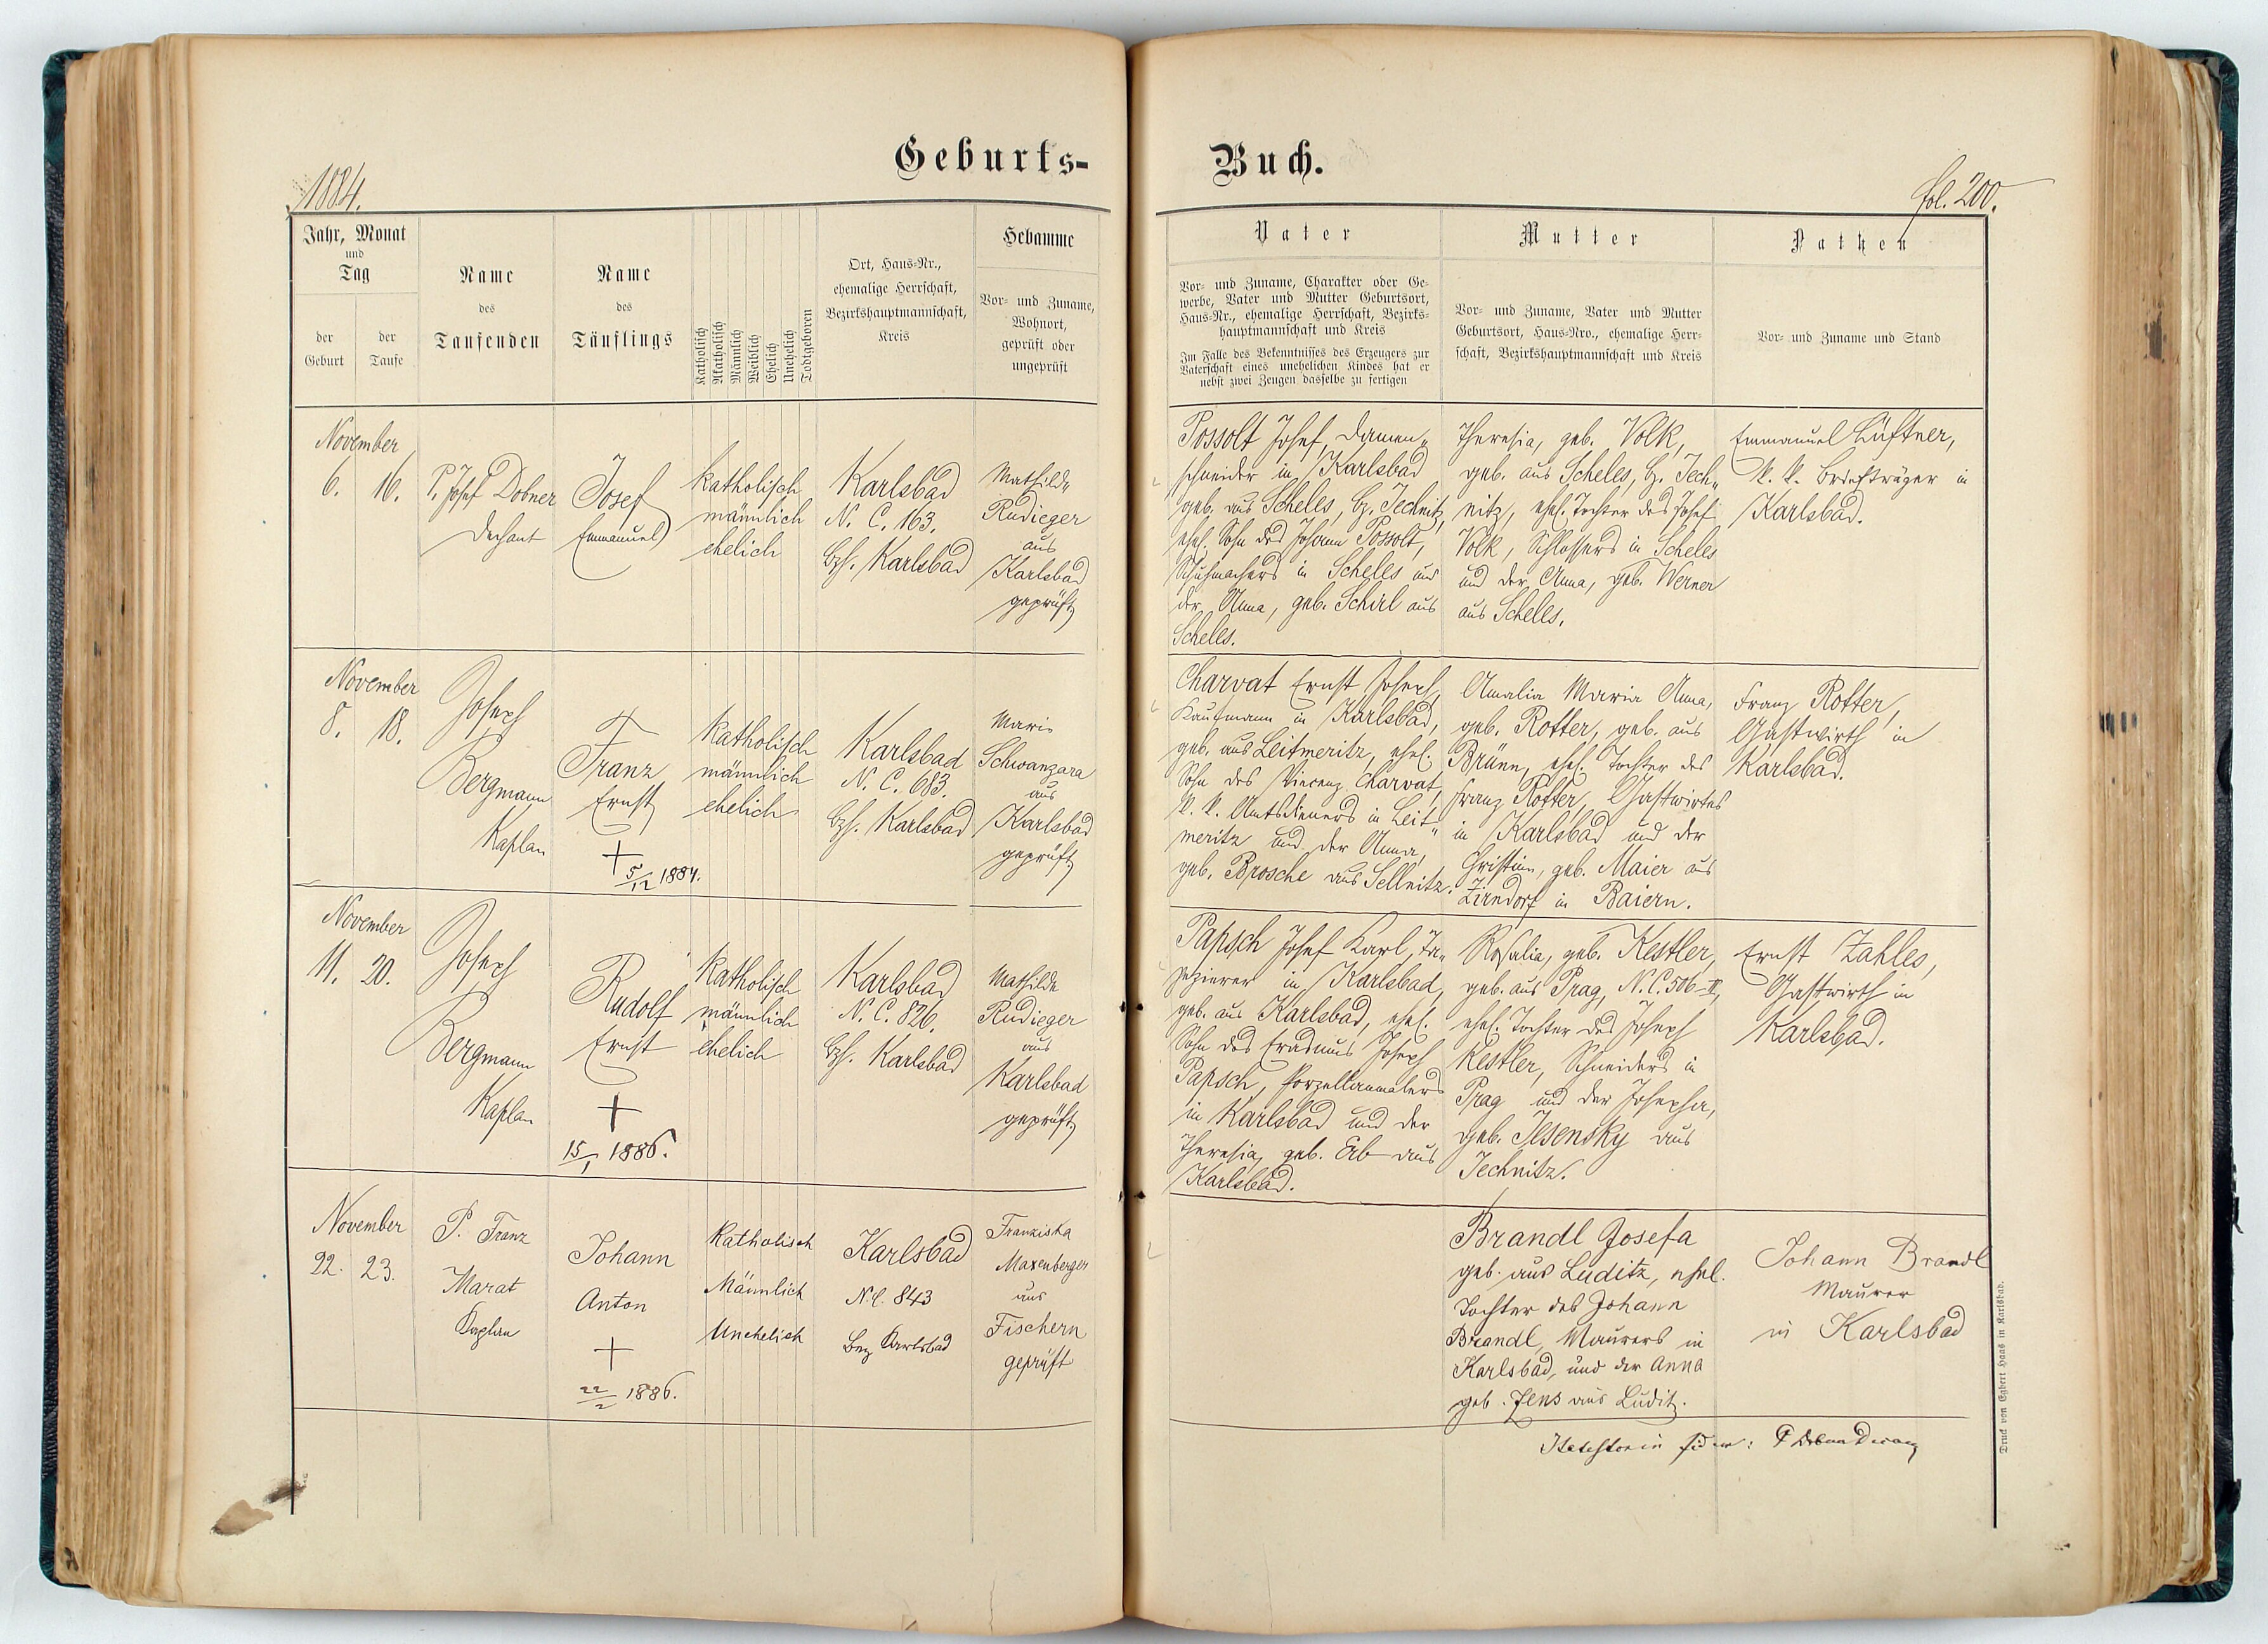 Geburts-
Buch.
1884.
fol. 200.
Jahr, Monat
und
Tag
der
Geburt
der
Taufe
Name
des
Taufenden
Name
des
Täuflings
Katholisch
Akatholisch
Männlich
Weiblich
Ehelich
Unehelich
Todtgeboren
Ort, Haus-Nr.,
ehemalige Herrschaft,
Bezirkshauptmannschaft,
Kreis
Hebamme
Vor- und Zuname,
Wohnort,
geprüft oder
ungeprüft
Vater
Vor- und Zuname, Charakter oder Ge-
werbe, Vater und Mutter Geburtsort,
Haus-Nr., ehemalige Herrschaft, Bezirks-
hauptmannschaft und Kreis
Im Falle des Bekenntnisses des Erzeugers zur
Vaterschaft eines unehelichen Kindes hat er
nebst zwei Zeugen dasselbe zu fertigen
Mutter
Vor- und Zuname, Vater und Mutter
Geburtsort, Haus-Nro., ehemalige Herr-
schaft, Bezirkshauptmannschaft und Kreis
Pathen
Vor- und Zuname und Stand
November
6. 16.
P. Josef Dobner
Dechant
Josef
Emmanuel
katholisch
männlich
ehelich
Karlsbad
N. C. 163.
Bzh. Karlsbad
Mathilde
Rudieger
aus
Karlsbad
geprüft
Possolt Josef, Damen„
schneider in Karlsbad
geb. aus Scheles, Bz. Jechnitz,
ehel. Sohn des Johann Possolt,
Schuhmachers in Scheles und
der Anna, geb. Schirl aus
Scheles.
Theresia, geb. Volk,
geb. aus Scheles, Bz. Jech„
nitz, ehel. Tochter des Josef
Volk, Schlossers in Scheles
und der Anna, geb. Werner
aus Scheles.
Emmanuel Lüftner,
k. k. Briefträger in
Karlsbad.
November
8. 18.
Joseph
Bergmann
Kaplan
Franz
Ernst
5/12 1884.
katholisch
männlich
ehelich
Karlsbad
N. C. 683.
Bzh. Karlsbad
Marie
Schwanzara
aus
Karlsbad
geprüft
Charvat Ernst Joseph,
Kaufmann in Karlsbad,
geb. aus Leitmeritz, ehel.
Sohn des Vincenz Charvat,
k. k. Amtsdieners in Leit„
meritz und der Anna,
geb. Brosche aus Sellnitz.
Amalia Maria Anna,
geb. Rotter, geb. aus
Brünn, ehel. Tochter des
Franz Rotter, Gastwirtes
in Karlsbad und der
Christine, geb. Maier aus
Zirndorf in Baiern.
Franz Rotter,
Gastwirth in
Karlsbad.
November
11. 20.
Joseph
Bergmann
Kaplan
Rudolf
Ernst
15/1 1886.
katholisch
männlich
ehelich
Karlsbad
N. C. 826.
Bzh. Karlsbad
Mathilde
Rudieger
aus
Karlsbad
geprüft
Papsch Josef Karl, Ta„
pezierer in Karlsbad,
geb. aus Karlsbad, ehel.
Sohn des Erasmus Joseph
Papsch, Porzellanmalers
in Karlsbad und der
Theresia, geb. Erb aus
Karlsbad.
Rosalia, geb. Kestler,
geb. aus Prag, N. C. 506-II,
ehel. Tochter des Joseph
Kestler, Schneiders in
Prag und der Josepha,
geb. Jesensky aus
Jechnitz.
Ernst Zahles,
Gastwirth in
Karlsbad.
November
22. 23.
P. Franz
Marat
Kaplan
Johann
Anton
22/2 1886.
Katholisch
Männlich
Unehelich
Karlsbad
N. C. 843
Bez Karlsbad
Franziska
Maxenberger
aus
Fischern
geprüft
Brandl Josefa
geb. aus Luditz, ehel.
Tochter des Johann
Brandl, Maurers in
Karlsbad, und der Anna
geb. Jens aus Luditz.
Johann Brandl
Maurer
in Karlsbad
Druck von Egbert Haas in Karlsbad.